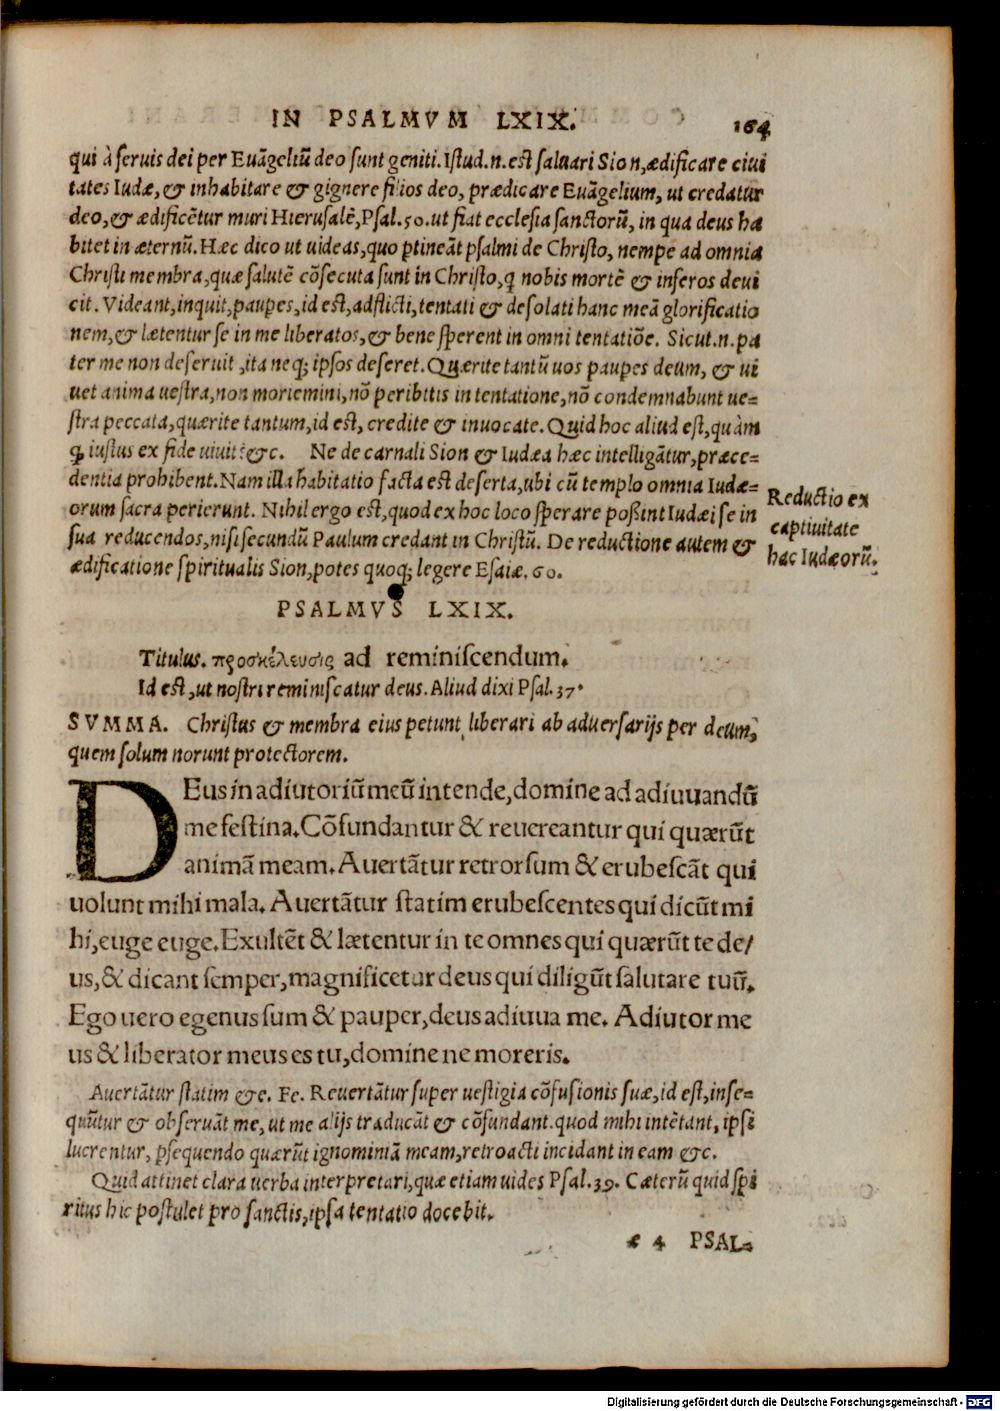 IN PSALMVM LXIX.
164
qui à seruis dei per Euãgeliũ deo sunt geniti. Istud.n.est saluari Sion, ædificare ciui
tates Iudæ, & inhabitare & gignere filios deo, prædicare Euãgelium, ut credatur
deo, & ædificẽtur muri Hierusalẽ, Psal.50. ut fiat ecclesia sanctorũ, in qua deus ha
bitet in æternũ. Hæc dico ut uideas, quo ꝑtineãt psalmi de Christo, nempe ad omnia
Christi membra, quæ salutẽ cõsecuta sunt in Christo, q̃ nobis mortẽ & inferos deui
cit. Videant, inquit, pauꝑes, id est, adflicti, tentati & desolati hanc meã glorificatio
nem, & lætentur se in me liberatos, & bene sperent in omni tentatiõe. Sicut.n.pa
ter me non deseruit, ita neq; ipsos deseret. Quærite tantũ uos pauꝑes deum, & ui
uet anima uestra, non moriemini, nõ peribitis in tentatione, nõ condemnabunt ue-
stra peccata, quærite tantum, id est, credite & inuocate. Quid hoc aliud est, quàm
ꝙ iustus ex fide uiuit? &c. Ne de carnali Sion & Iudæa hæc intelligãtur, præce-
dentia prohibent. Nam illa habitatio facta est deserta, ubi cũ templo omnia Iudæ-
orum sacra perierunt. Nihil ergo est, quod ex hoc loco sperare poßint Iudæi se in
sua reducendos, nisi secundũ Paulum credant in Christũ. De reductione autem &
ædificatione spiritualis Sion, potes quoq; legere Esaiæ.60.
Reductio ex
captiuitate
hac Iudæorũ.
PSALMVS LXIX.
Titulus. προσκέλευσις ad reminiscendum.
Id est, ut nostri reminiscatur deus. Aliud dixi Psal.37.
SVMMA. Christus & membra eius petunt liberari ab aduersarijs per deum,
quem solum norunt protectorem.
DEus in adiutoriũ meũ intende, domine ad adiuuandũ
me festina. Cõfundantur & reuereantur qui quærũt
animã meam. Auertãtur retrorsum & erubescãt qui
uolunt mihi mala. Auertãtur statim erubescentes qui dicũt mi
hi, euge euge. Exultẽt & lætentur in te omnes qui quærũt te de/
us, & dicant semper, magnificetur deus qui diligũt salutare tuũ.
Ego uero egenus sum & pauper, deus adiuua me. Adiutor me
us & liberator meus es tu, domine ne moreris.
Auertãtur statim &c. Fe. Reuertãtur super uestigia cõfusionis suæ, id est, inse-
quũtur & obseruãt me, ut me alijs traducãt & cõfundant. quod mihi intẽtant, ipsi
lucrentur, ꝑsequendo quærũt ignominiã meam, retroacti incidant in eam &c.
Quid attinet clara uerba interpretari, quæ etiam uides Psal.39. Cæterũ quid spi
ritus hic postulet pro sanctis, ipsa tentatio docebit.
e 4 PSAL-
Digitalisierung gefördert durch die Deutsche Forschungsgemeinschaft - DFG